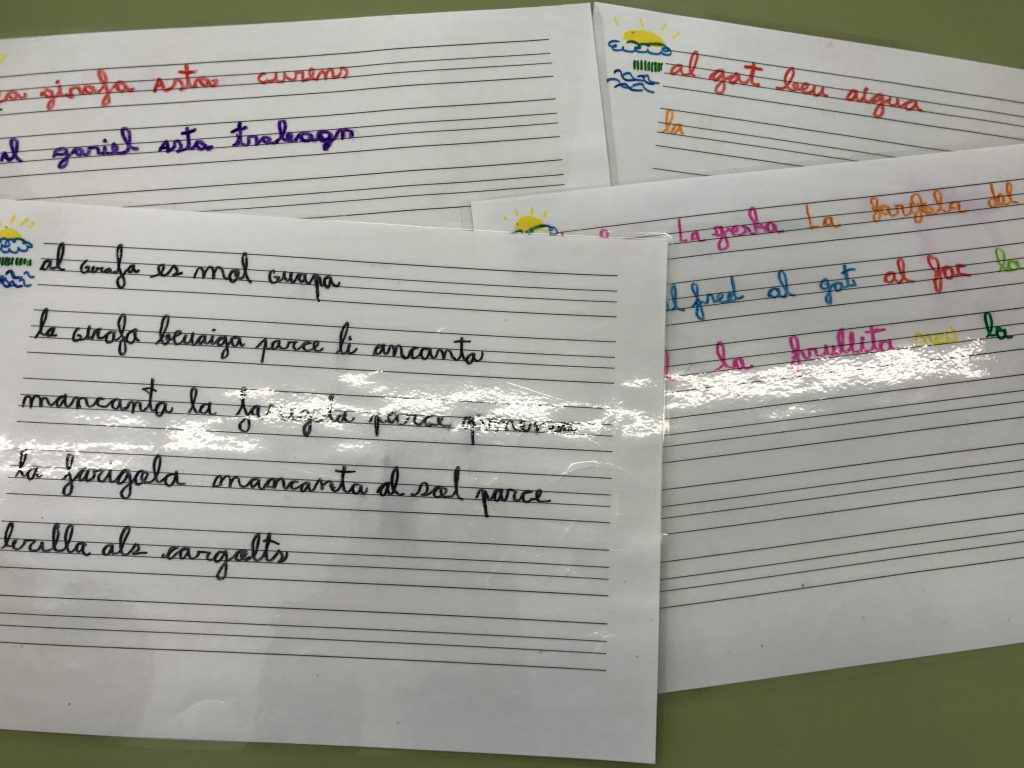 la girafa asta curens
al gariel asta trabagn
al gat beu aigua
la
la gerka La farigola dal
al fred al gat al foc la
la brulleta la
al girafa es mol guapa
la girafa beuaiga parce li ancanta
mancanta la farigola parce
la farigola mancanta al sol parce
brilla als cargolts